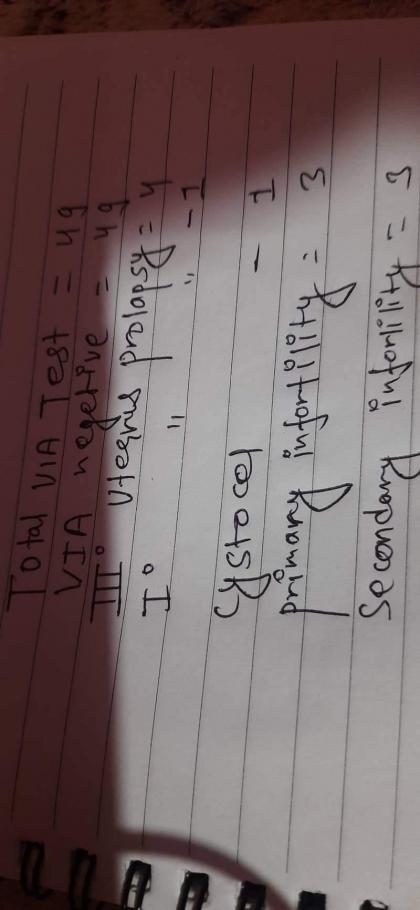 Total VIA Test = 49
VIA negetive = 49
III° Utegnus prolapsy = 4
I° " " - 1
Cystocel - 1
primary infortility = 3
Secondary infortility = 3